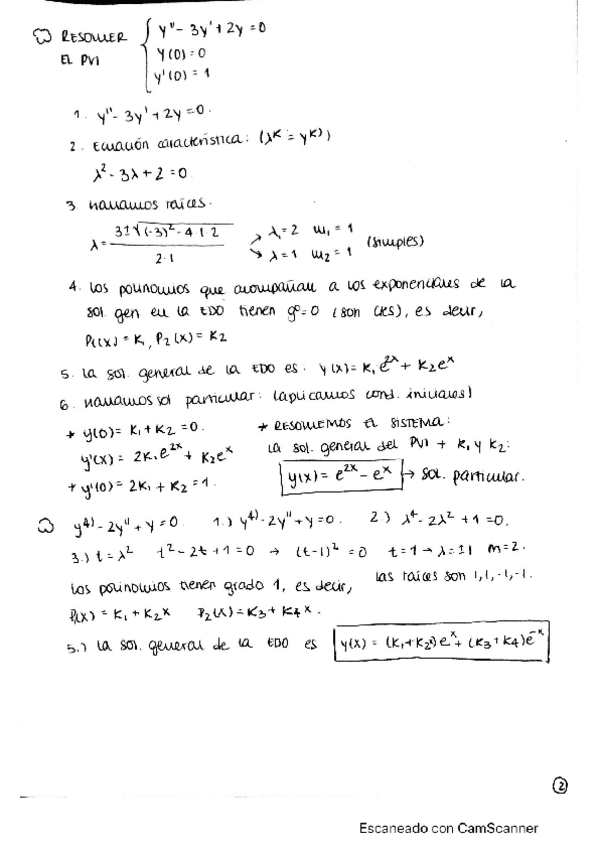 RESOLVER
EL PVI
y'' - 3y' + 2y = 0
y(0) = 0
y'(0) = 1
1. y'' - 3y' + 2y = 0.
2. Ecuación característica: (λ^k = y^k))
λ² - 3λ + 2 = 0
3. Hallamos raíces.
λ = 3±√(-3)² - 4·1·2 / 2·1
λ₁ = 2 m₁ = 1
λ = 1 m₂ = 1
(simples)
4. Los polinomios que acompañan a los exponenciales de la
sol. gen en la EDO tienen gº = 0 (son ctes), es decir,
P₁(x) = K₁, P₂(x) = K₂
5. La sol. general de la EDO es: y(x) = K₁e^2x + K₂e^x
6. Hallamos sol particular: (aplicamos cond. iniciales)
* y(0) = K₁ + K₂ = 0.
* RESOLVEMOS EL SISTEMA:
y'(x) = 2K₁e^2x + K₂e^x
La sol. general del PVI + K₁ y K₂:
* y'(0) = 2K₁ + K₂ = 1.
y(x) = e^2x - e^x → sol. particular.
y^4) - 2y'' + y = 0. 1.) y^4) - 2y'' + y = 0. 2.) λ⁴ - 2λ² + 1 = 0.
3.) t = λ² t² - 2t + 1 = 0 → (t-1)² = 0 t = 1 → λ = ±1 m = 2.
las raíces son 1, 1, -1, -1.
Los polinomios tienen grado 1, es decir,
P₁(x) = K₁ + K₂x P₂(x) = K₃ + K₄x.
5.) La sol. general de la EDO es y(x) = (K₁ + K₂x)e^x + (K₃ + K₄)e^-x
2
Escaneado con CamScanner